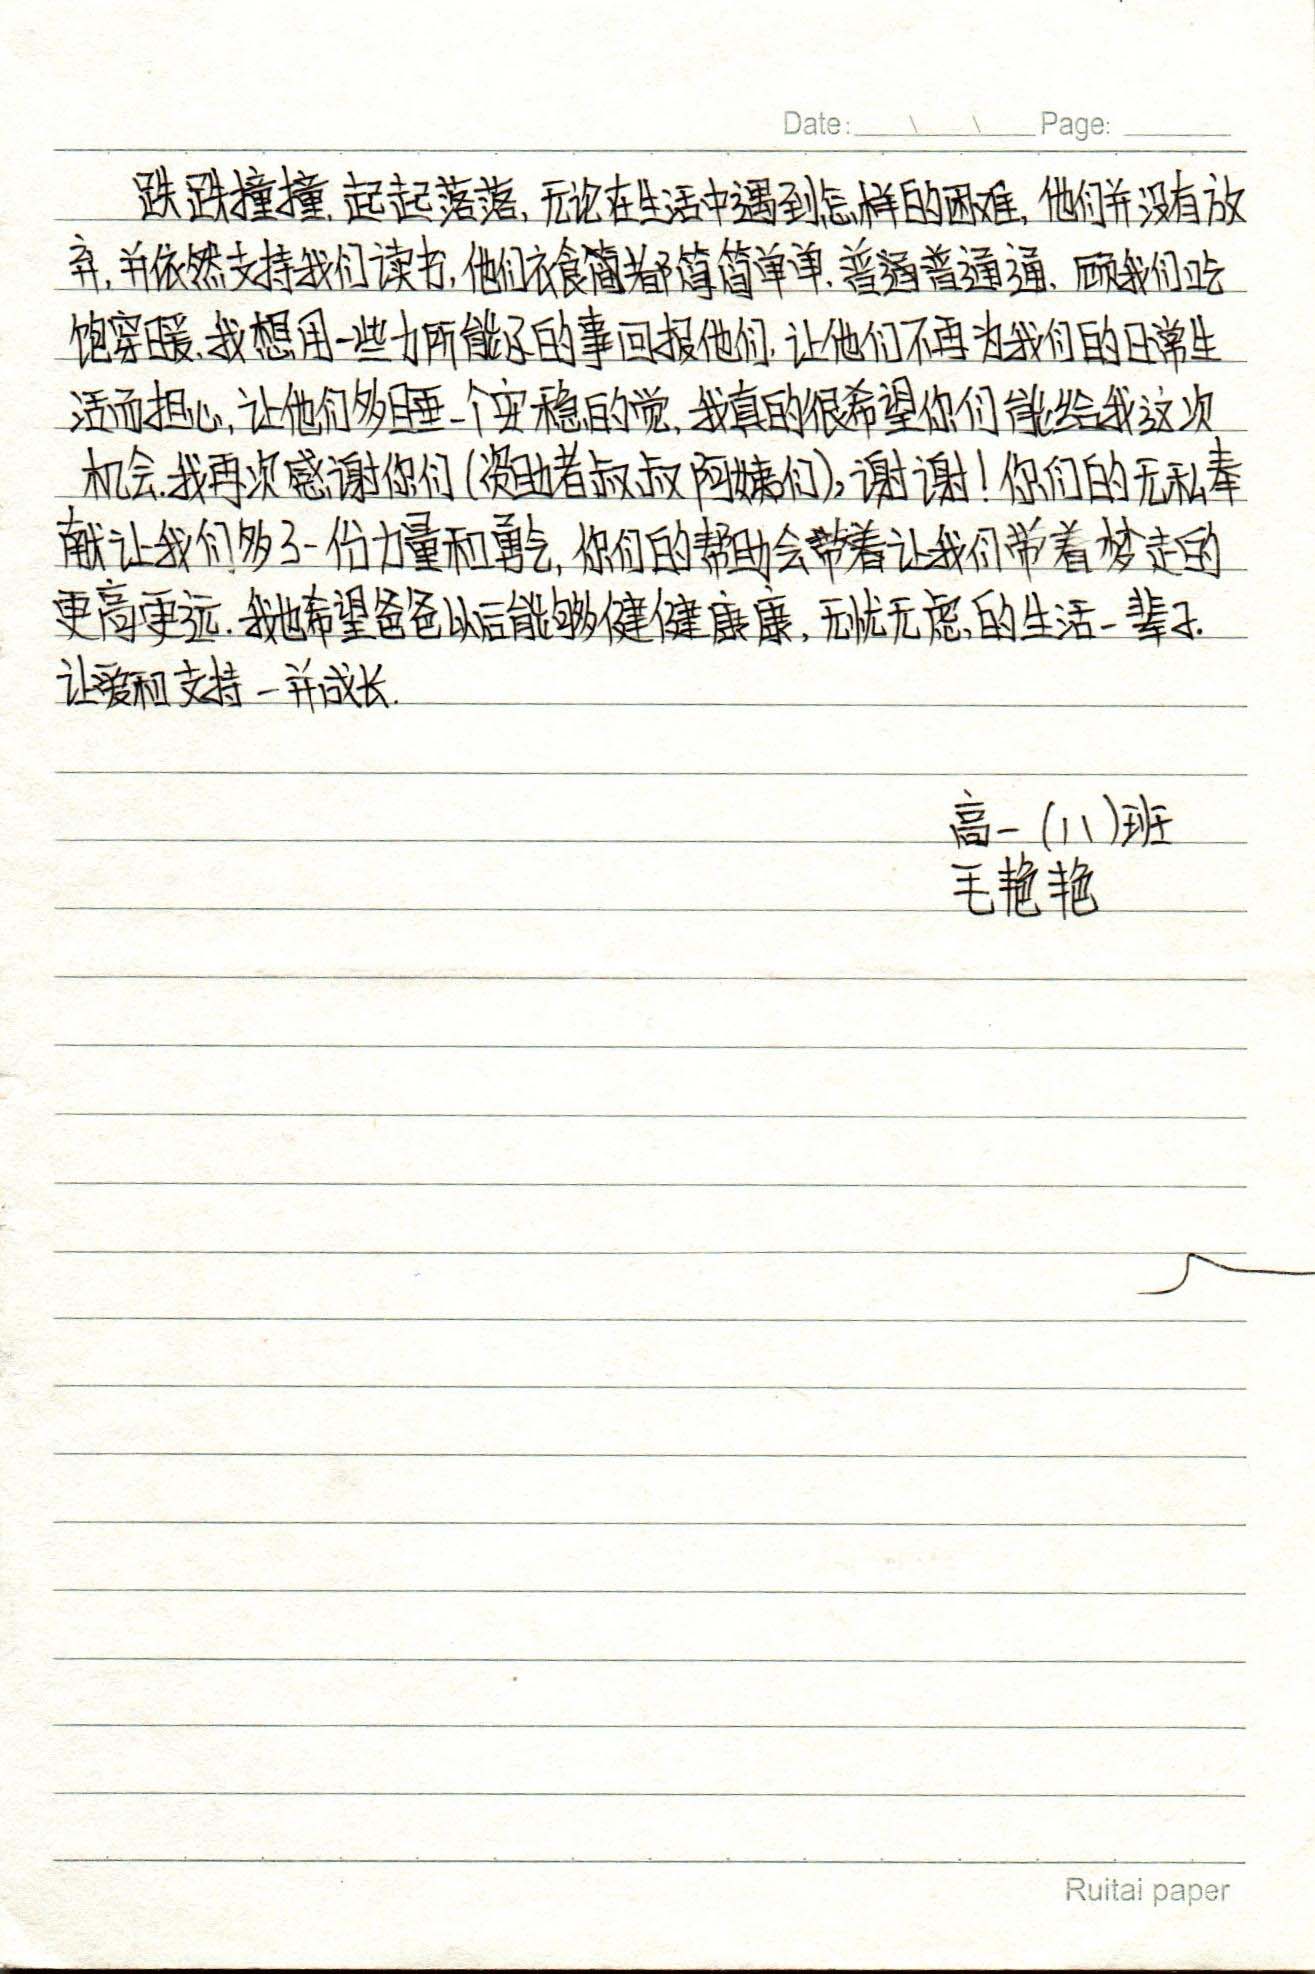 Date: \ \ Page:
跌跌撞撞,起起落落,无论在生活中遇到怎样的困难,他们并没有放
弃,并依然支持我们读书,他们衣食简着都简简单单.普通普通通、顾我们吃
饱穿暖.我想用一些力所能及的事回报他们,让他们不再为我们的日常生
活而担心,让他们多睡一个安稳的觉,我真的很希望你们能给我这次
机会.我再次感谢你们(资助者叔叔阿姨们),谢谢!你们的无私奉
献让我们多了一份力量和勇气,你们的帮助会带着让我们带着梦走的
更高更远.我也希望爸爸以后能够健健康康,无忧无虑,的生活一辈子.
让爱和支持一并成长.
高一(八)班
毛艳艳
Ruitai paper